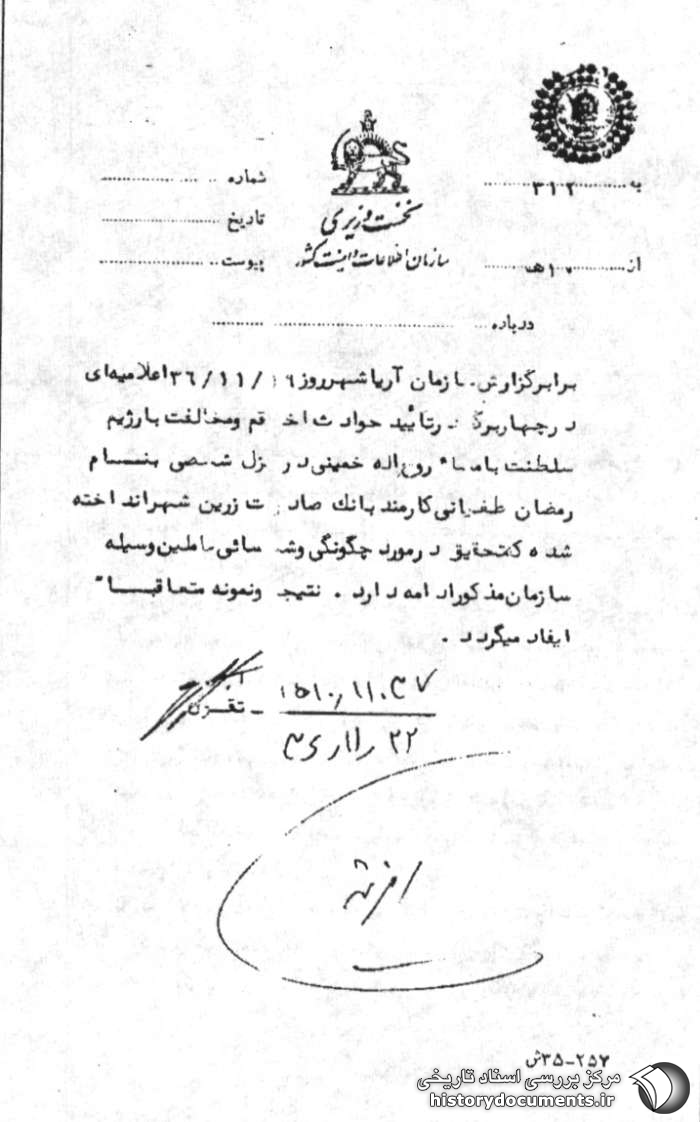 به ۳۱۲
شماره
نخست وزیری
تاریخ
سازمان اطلاعات و امنیت کشور
از ۱۰هـ
پیوست
درباره
برابر گزارش سازمان آریاشهر روز ۱۶/۱۱/۳۶ اعلامیه‌ای
در چهار برگ در تائید حوادث اخیر قم ومخالفت با رژیم
سلطنت بامضاء روح‌اله خمینی در منزل شخصی بنام
رمضان طغیانی کارمند بانک صادرات زرین شهر انداخته
شده که تحقیق در مورد چگونگی وشناسائی عاملین وسیله
سازمان مذکور ادامه دارد . نتیجه ونمونه متعاقباً
ایفاد میگردد .
۲۲
۳۵-۲۵۷ش
مرکز بررسی اسناد تاریخی
historydocuments.ir